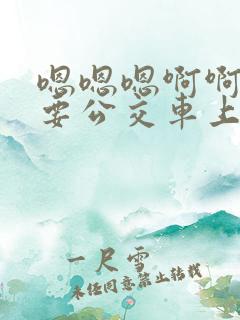 嗯嗯嗯啊啊
要公交車上
一尺雪
未经同意禁止转载